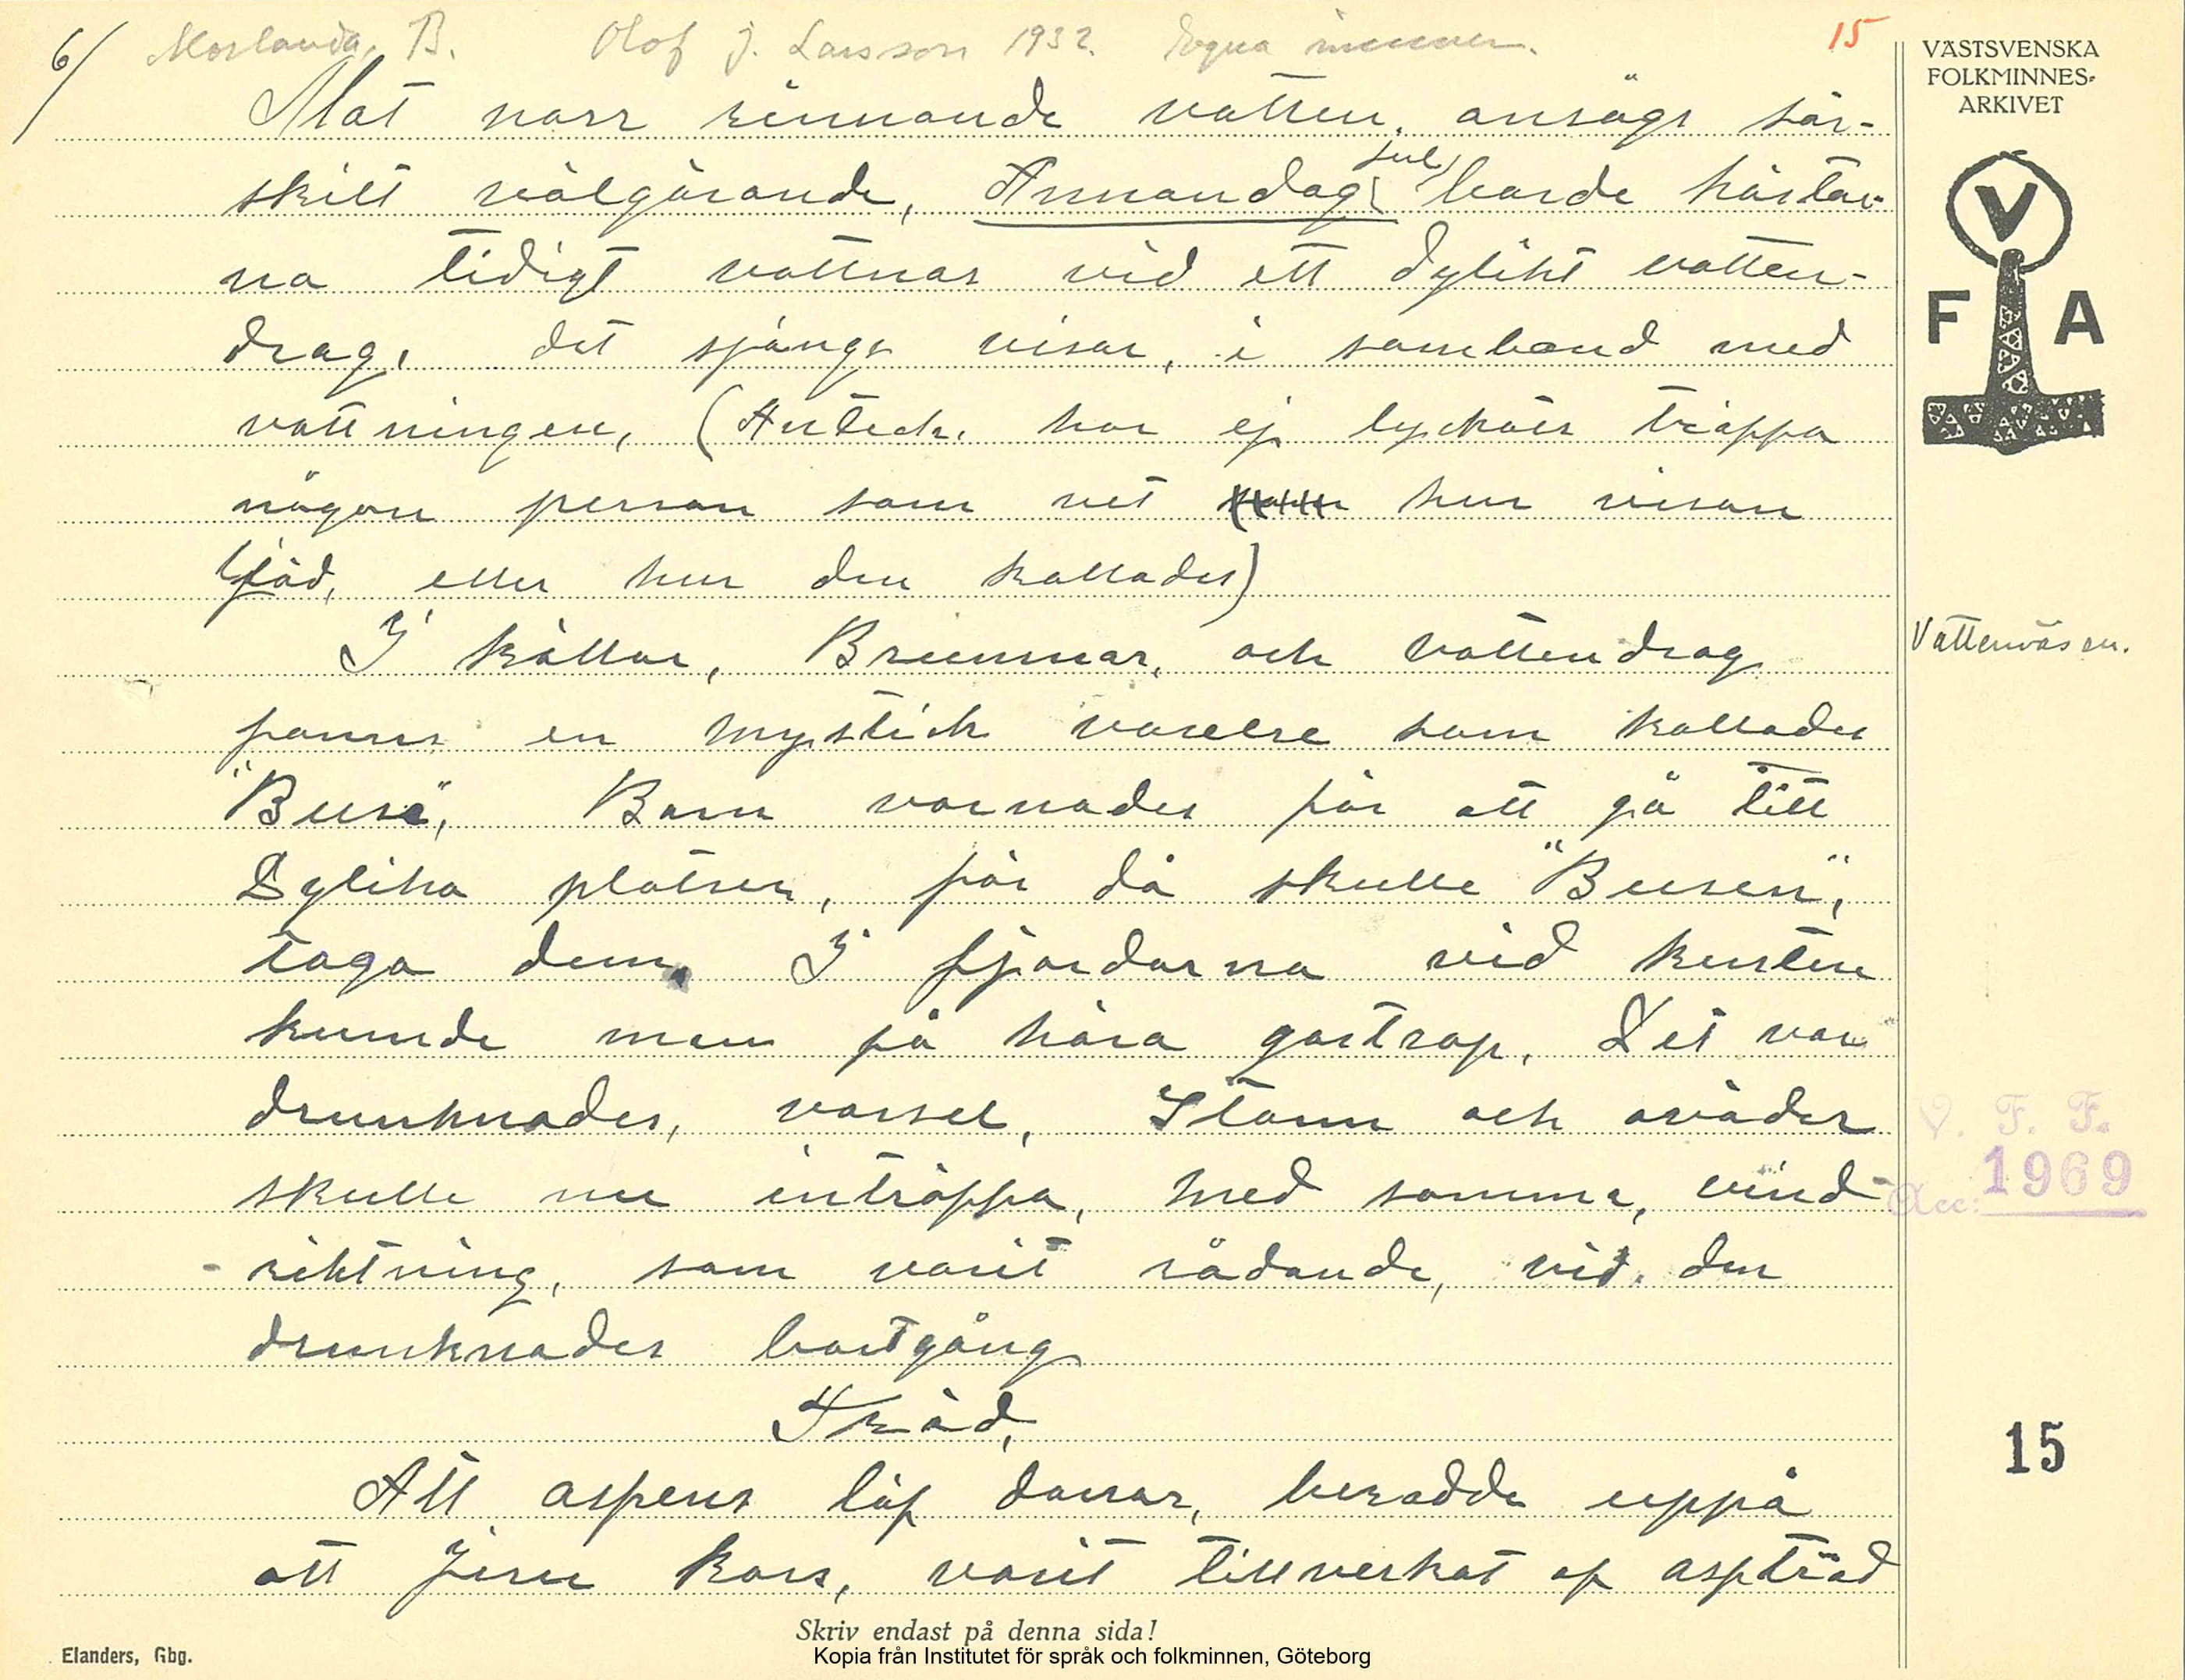 6/ Morlanda, B. Olof J. Larsson 1932. Egna minnen. 15
VÄSTSVENSKA
FOLKMINNES-
ARKIVET
V
F A
Mot norr rinnande vatten, ansågs sär-
skilt välgörande, Annandag jul borde hästar-
na tidigt vattnas vid ett dylikt vatten-
drag, det sjöngs visor, i samband med
vattningen, (Anteck. har ej lyckats träffa
någon person som vet hur visan
ljöd, eller hur den kallades)
I källor, Brunnar, och vattendrag
fanns en mystisk varelse som kallades
"Buse", Barn varnades för att gå till
Dylika platser, för då skulle "Busen",
taga dem. I fjordarna vid kusten
kunde man få höra gastrop, Det var
drunknades, varsel, Storm och oväder
skulle nu inträffa, med samma, vind-
-riktning, som varit rådande, vid den
drunknades bortgång
Träd,
Att aspens löf darrar, berodde uppå
att Jesu kors, varit tillverkat af aspträd
Vattenväsen.
V. F. F.
Acc: 1969
15
Skriv endast på denna sida!
Elanders, Gbg.
Kopia från Institutet för språk och folkminnen, Göteborg